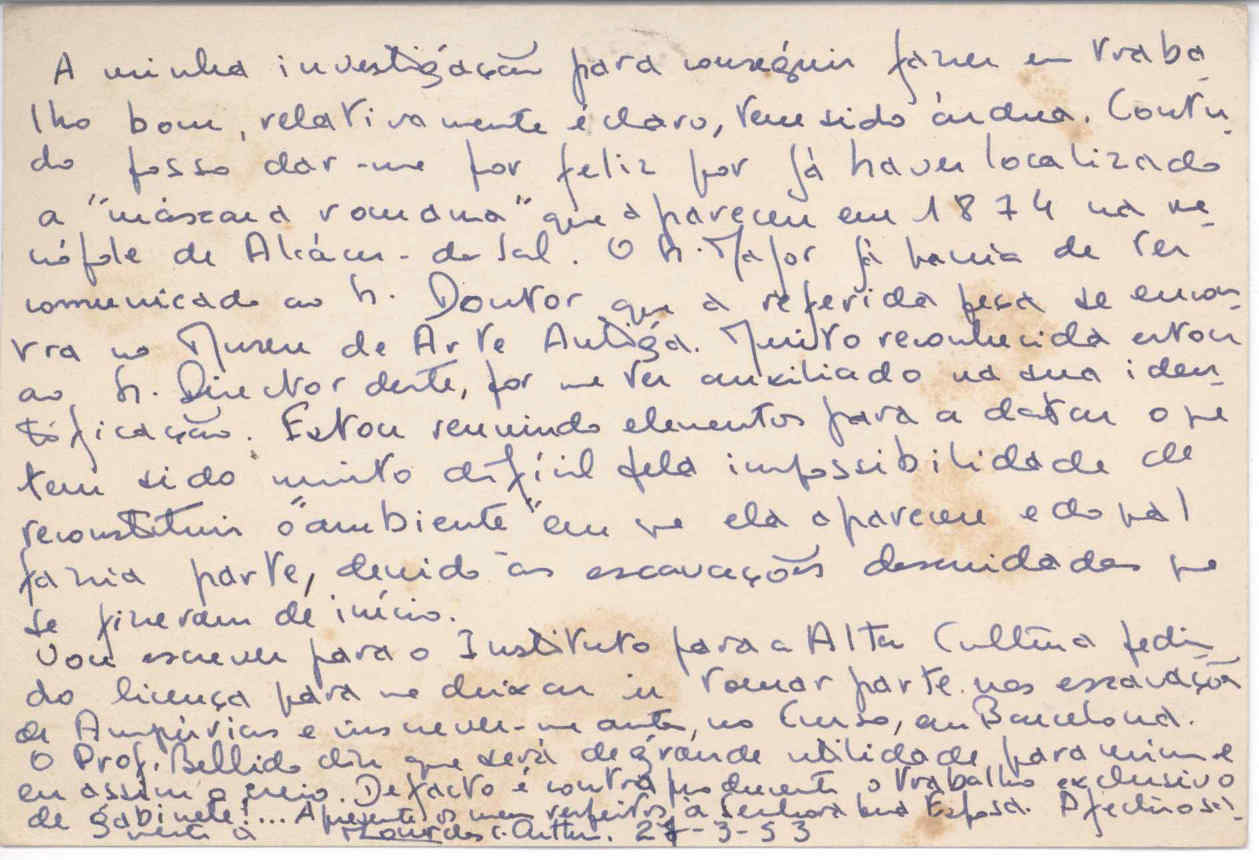 A minha investigação para conseguir fazer um traba-
lho bom, relativamente é claro, tem sido árdua. Contu-
do posso dar-me por feliz por já haver localizado
a "máscara romana" que apareceu em 1874 na ne-
crópole de Alcácer-do-Sal. O Sr. Major já havia de ter
comunicado ao Sr. Doutor que a referida peça se encon-
tra no Museu de Arte Antiga. Muito reconhecida estou
ao Sr. Director deste, por me ter auxiliado na sua iden-
tificação. Estou reunindo elementos para a datar o que
tem sido muito difícil pela impossibilidade de
reconstituir o "ambiente" em que ela apareceu e do qual
fazia parte, devido às escavações descuidadas que
se fizeram de início.
Vou escrever para o Instituto para a Alta Cultura pedin-
do licença para me deixar ir tomar parte nas escavações
de Ampúrias e inscrever-me antes, no Curso, em Barcelona.
O Prof. Bellido diz que será de grande utilidade para mim e
eu assim o creio. De facto é contraproducente o trabalho exclusivo
de gabinete!... Apresente os meus respeitos à Senhora sua Esposa. Afectuosa-
mente a Lourdes C. Arthur. 27-3-53